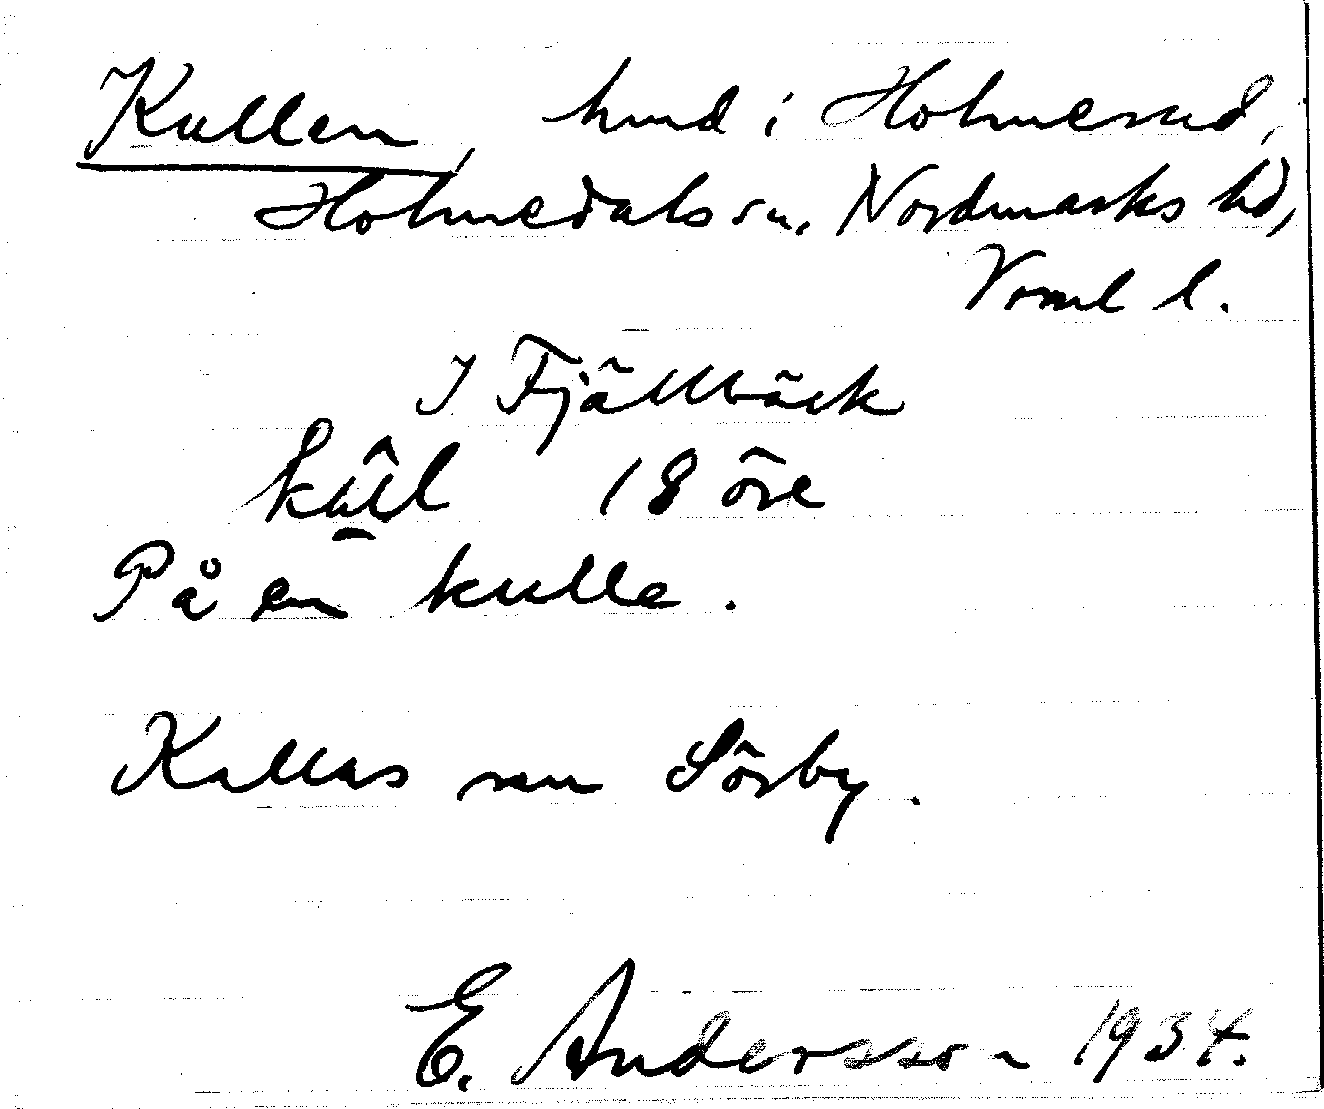 Kullen, hmd i Holmerud,
Holmedals sn, Nordmarks hd,
Vrml l.
I Fjällbäck
18 öre
På en kulle.
Kallas nu Sörby.
E. Andersson 1934.